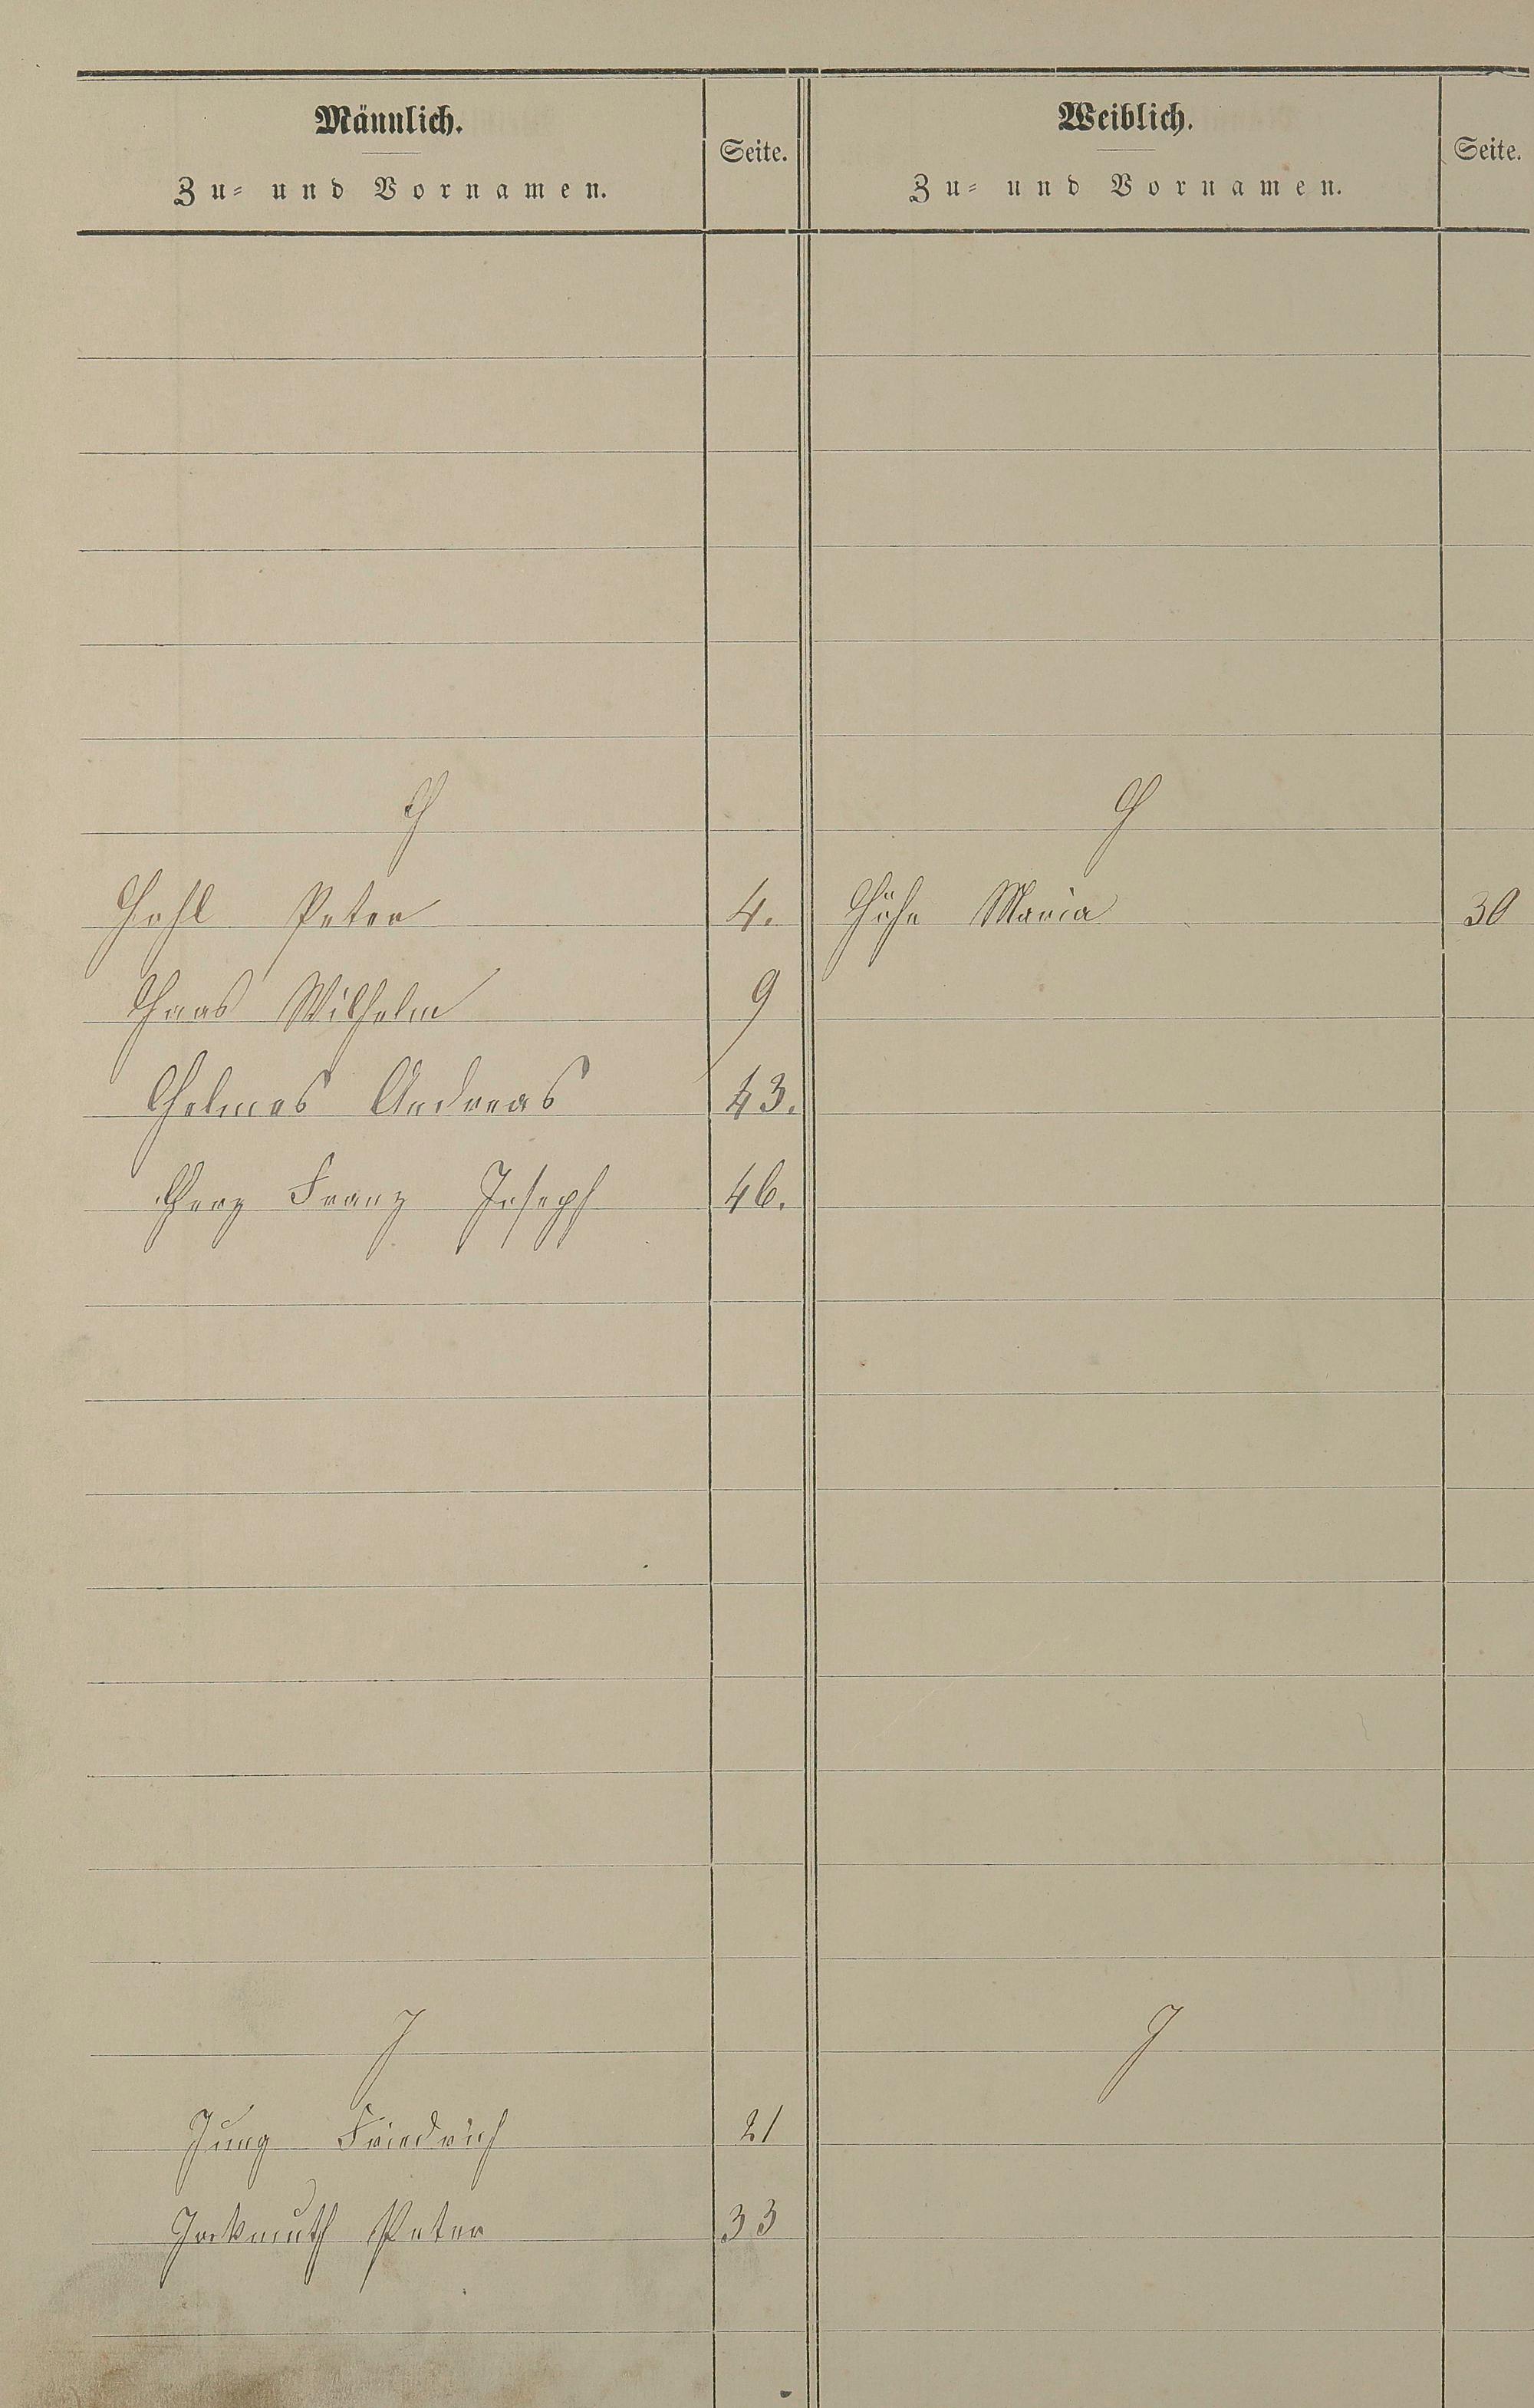 Männlich.
Zu- und Vornamen.
Seite.
Weiblich.
Zu- und Vornamen.
Seite.
H
H
Hohl Peter 4.
Höhn Maria 30
Haas Wilhelm 9
Helmes Andreas 43.
Herz Franz Joseph 46.
J
J
Jung Friedrich 21
Peter 33